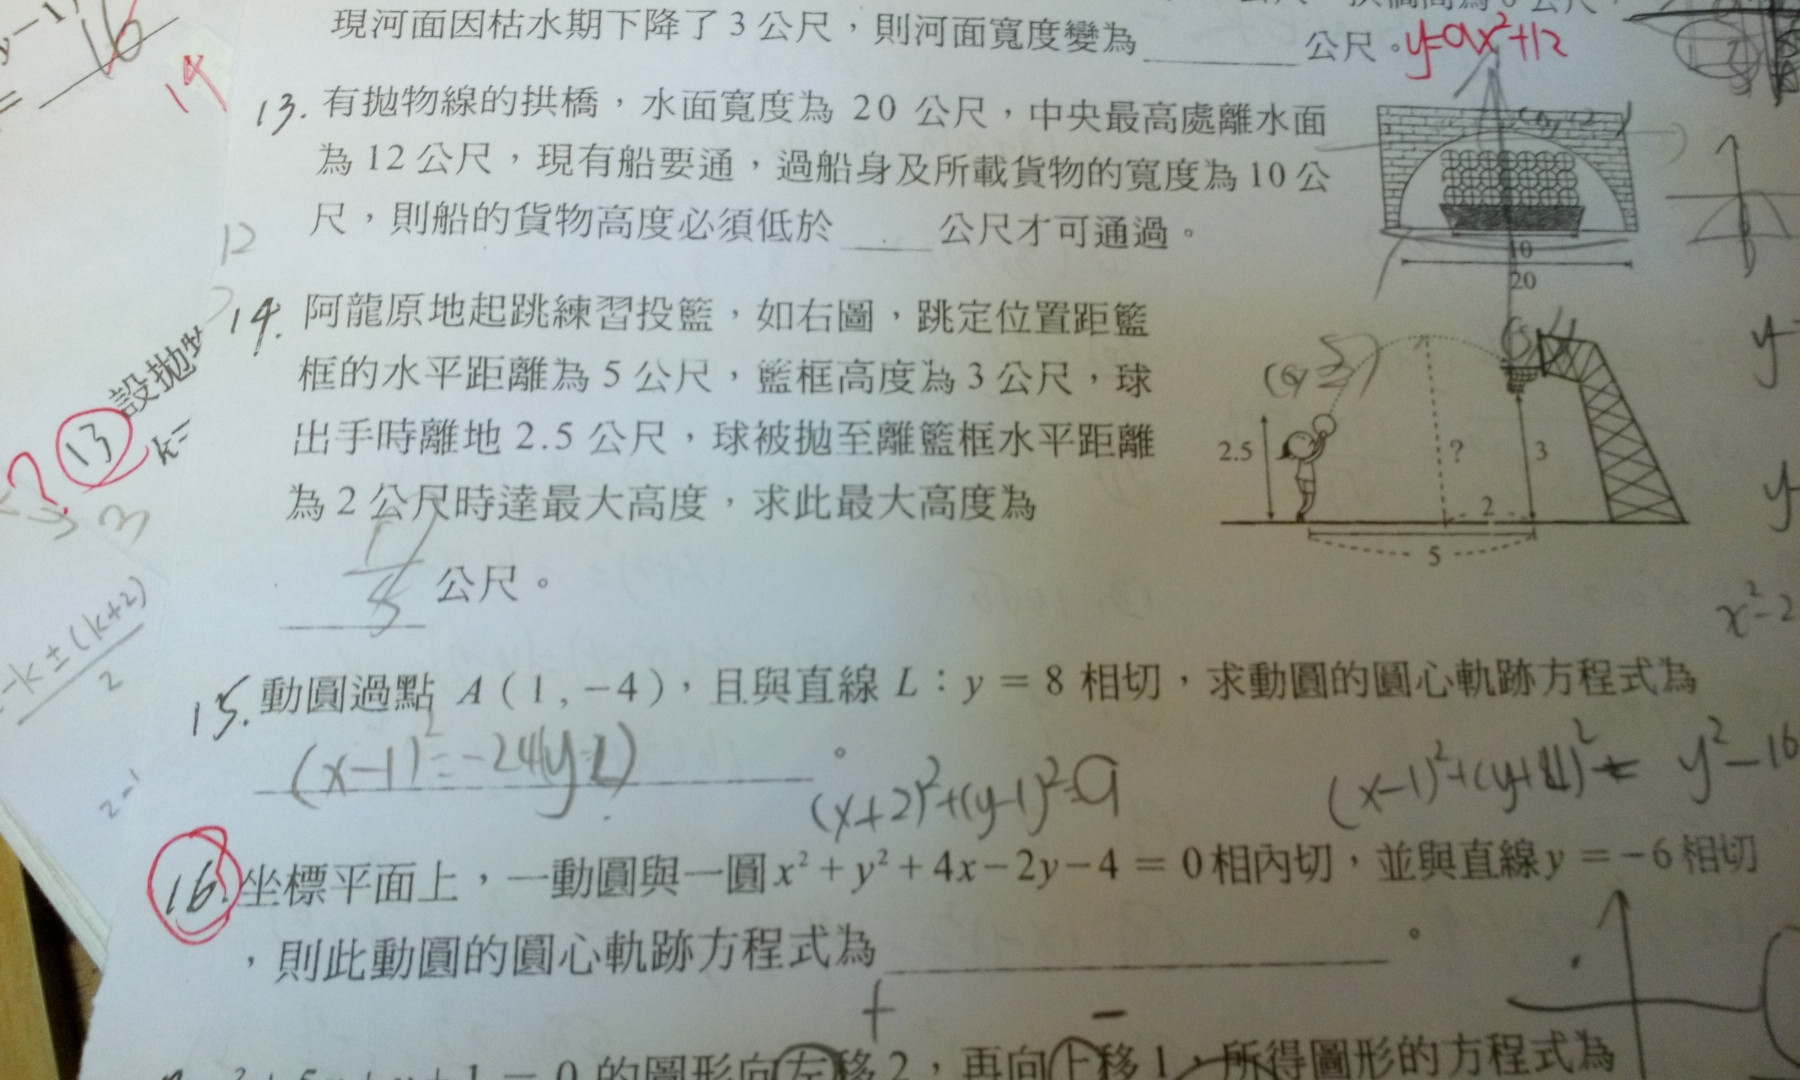 現河面因枯水期下降了 3 公尺，則河面寬度變為______公尺。y=ax²+12
16
14
13. 有拋物線的拱橋，水面寬度為 20 公尺，中央最高處離水面
為 12 公尺，現有船要通，過船身及所載貨物的寬度為 10 公
尺，則船的貨物高度必須低於____公尺才可通過。
10
20
12
14. 阿龍原地起跳練習投籃，如右圖，跳定位置距籃
框的水平距離為 5 公尺，籃框高度為 3 公尺，球
出手時離地 2.5 公尺，球被拋至離籃框水平距離
為 2 公尺時達最大高度，求此最大高度為
公尺。
2.5
?
3
2
5
13 設拋
k=
3
-k±(k+2)
2
15. 動圓過點 A ( 1 , −4 )，且與直線 L：y = 8 相切，求動圓的圓心軌跡方程式為
(x-1)²=-24(y-2)。
(x+2)²+(y-1)²=9
y²-16
x²-2
2-1
16 坐標平面上，一動圓與一圓 x² + y² + 4x − 2y − 4 = 0 相內切，並與直線 y = −6 相切
，則此動圓的圓心軌跡方程式為____________。
+ −
= 0 的圖形向左移 2，再向上移 1，所得圖形的方程式為